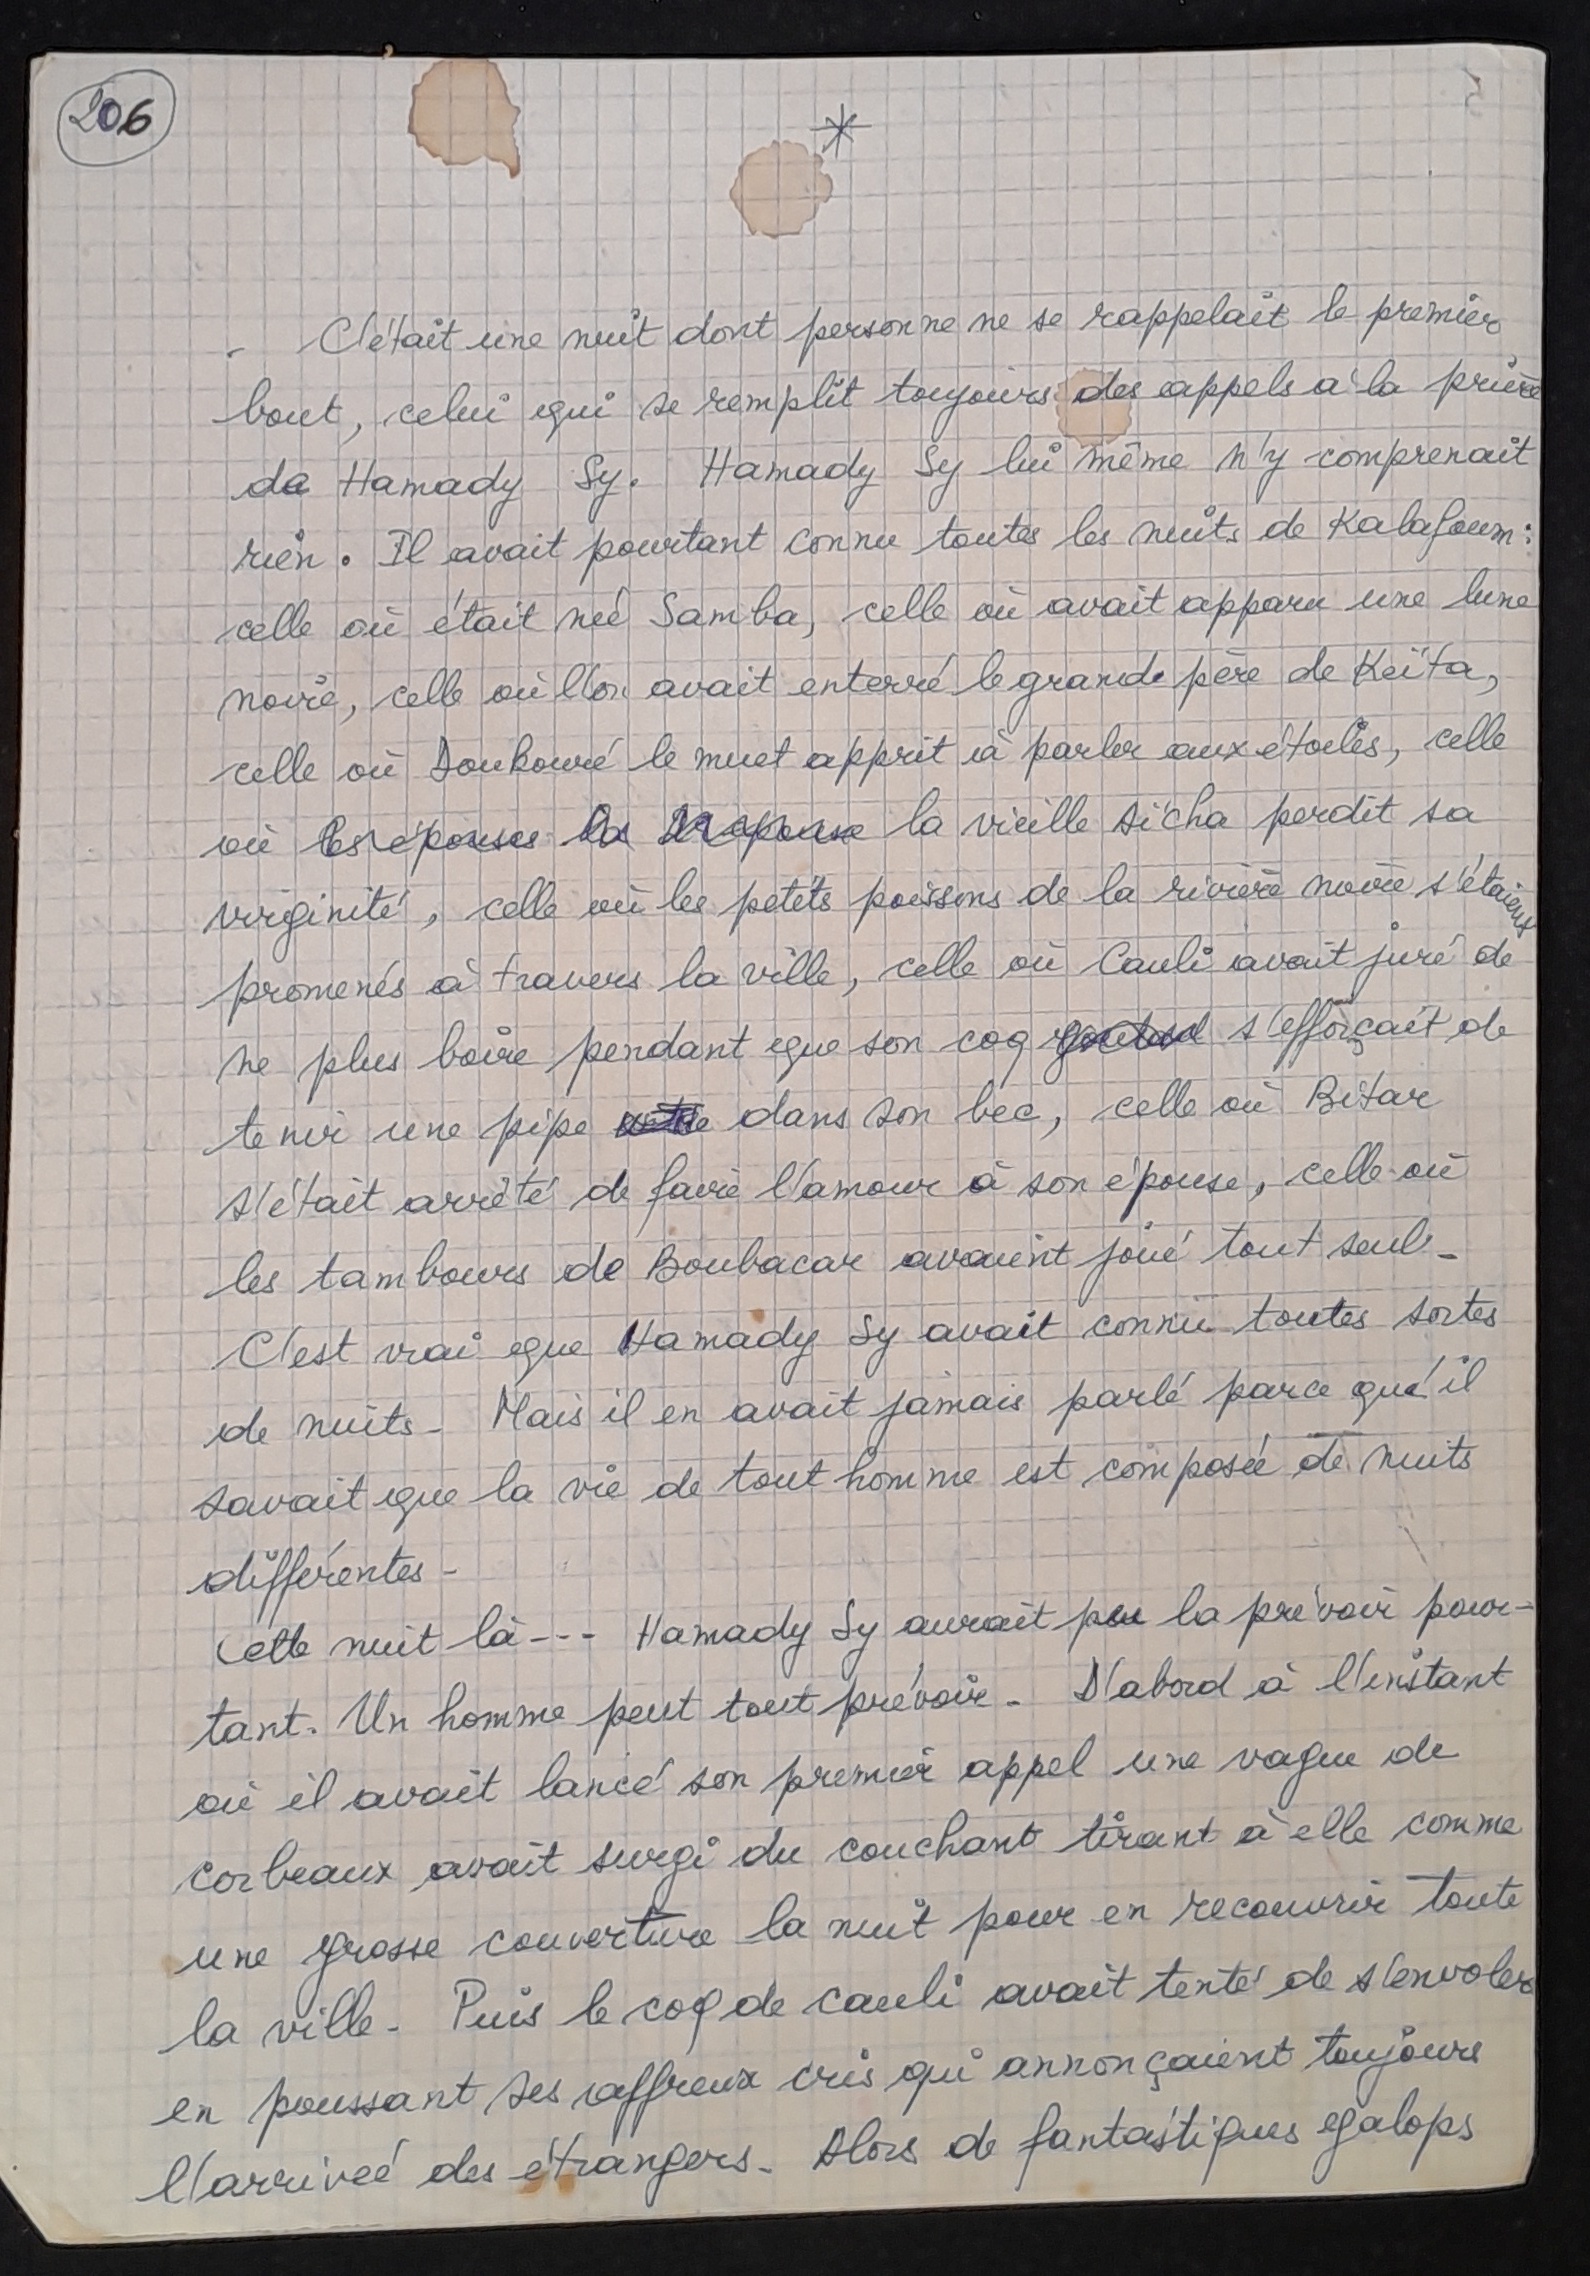 206
*
. C'était une nuit dont personne ne se rappelait le premier
bout, celui qui se remplit toujours des appels à la prière
de Hamady Sy. Hamady Sy lui même n'y comprenait
rien. Il avait pourtant connu toutes les nuits de Kalafoum :
celle où était né Samba, celle où avait apparu une lune
noire, celle où l'on avait enterré le grand père de Keïta,
celle où Doukouré le muet apprit à parler aux étoiles, celle
où les épouses la vieille Aïcha perdit sa
virginité, celle où les petits poissons de la rivière noire s'étaient
promenés à travers la ville, celle où Cauli avait juré de
ne plus boire pendant que son coq s'efforçait de
tenir une pipe dans son bec, celle où Bitar
s'était arrêté de faire l'amour à son épouse, celle où
les tambours de Boubacar avaient joué tout seul -
C'est vrai que Hamady Sy avait connu toutes sortes
de nuits - Mais il en avait jamais parlé parce qu'il
savait que la vie de tout homme est composée de nuits
différentes -
Cette nuit là --- Hamady Sy aurait pu la prévoir pour-
tant. Un homme peut tout prévoir - D'abord à l'instant
où il avait lancé son premier appel une vague de
corbeaux avait surgi du couchant tirant à elle comme
une grosse couverture la nuit pour en recouvrir toute
la ville - Puis le coq de Cauli avait tenté de s'envoler
en poussant ses affreux cris qui annonçaient toujours
l'arrivée des étrangers - Alors de fantastiques galops